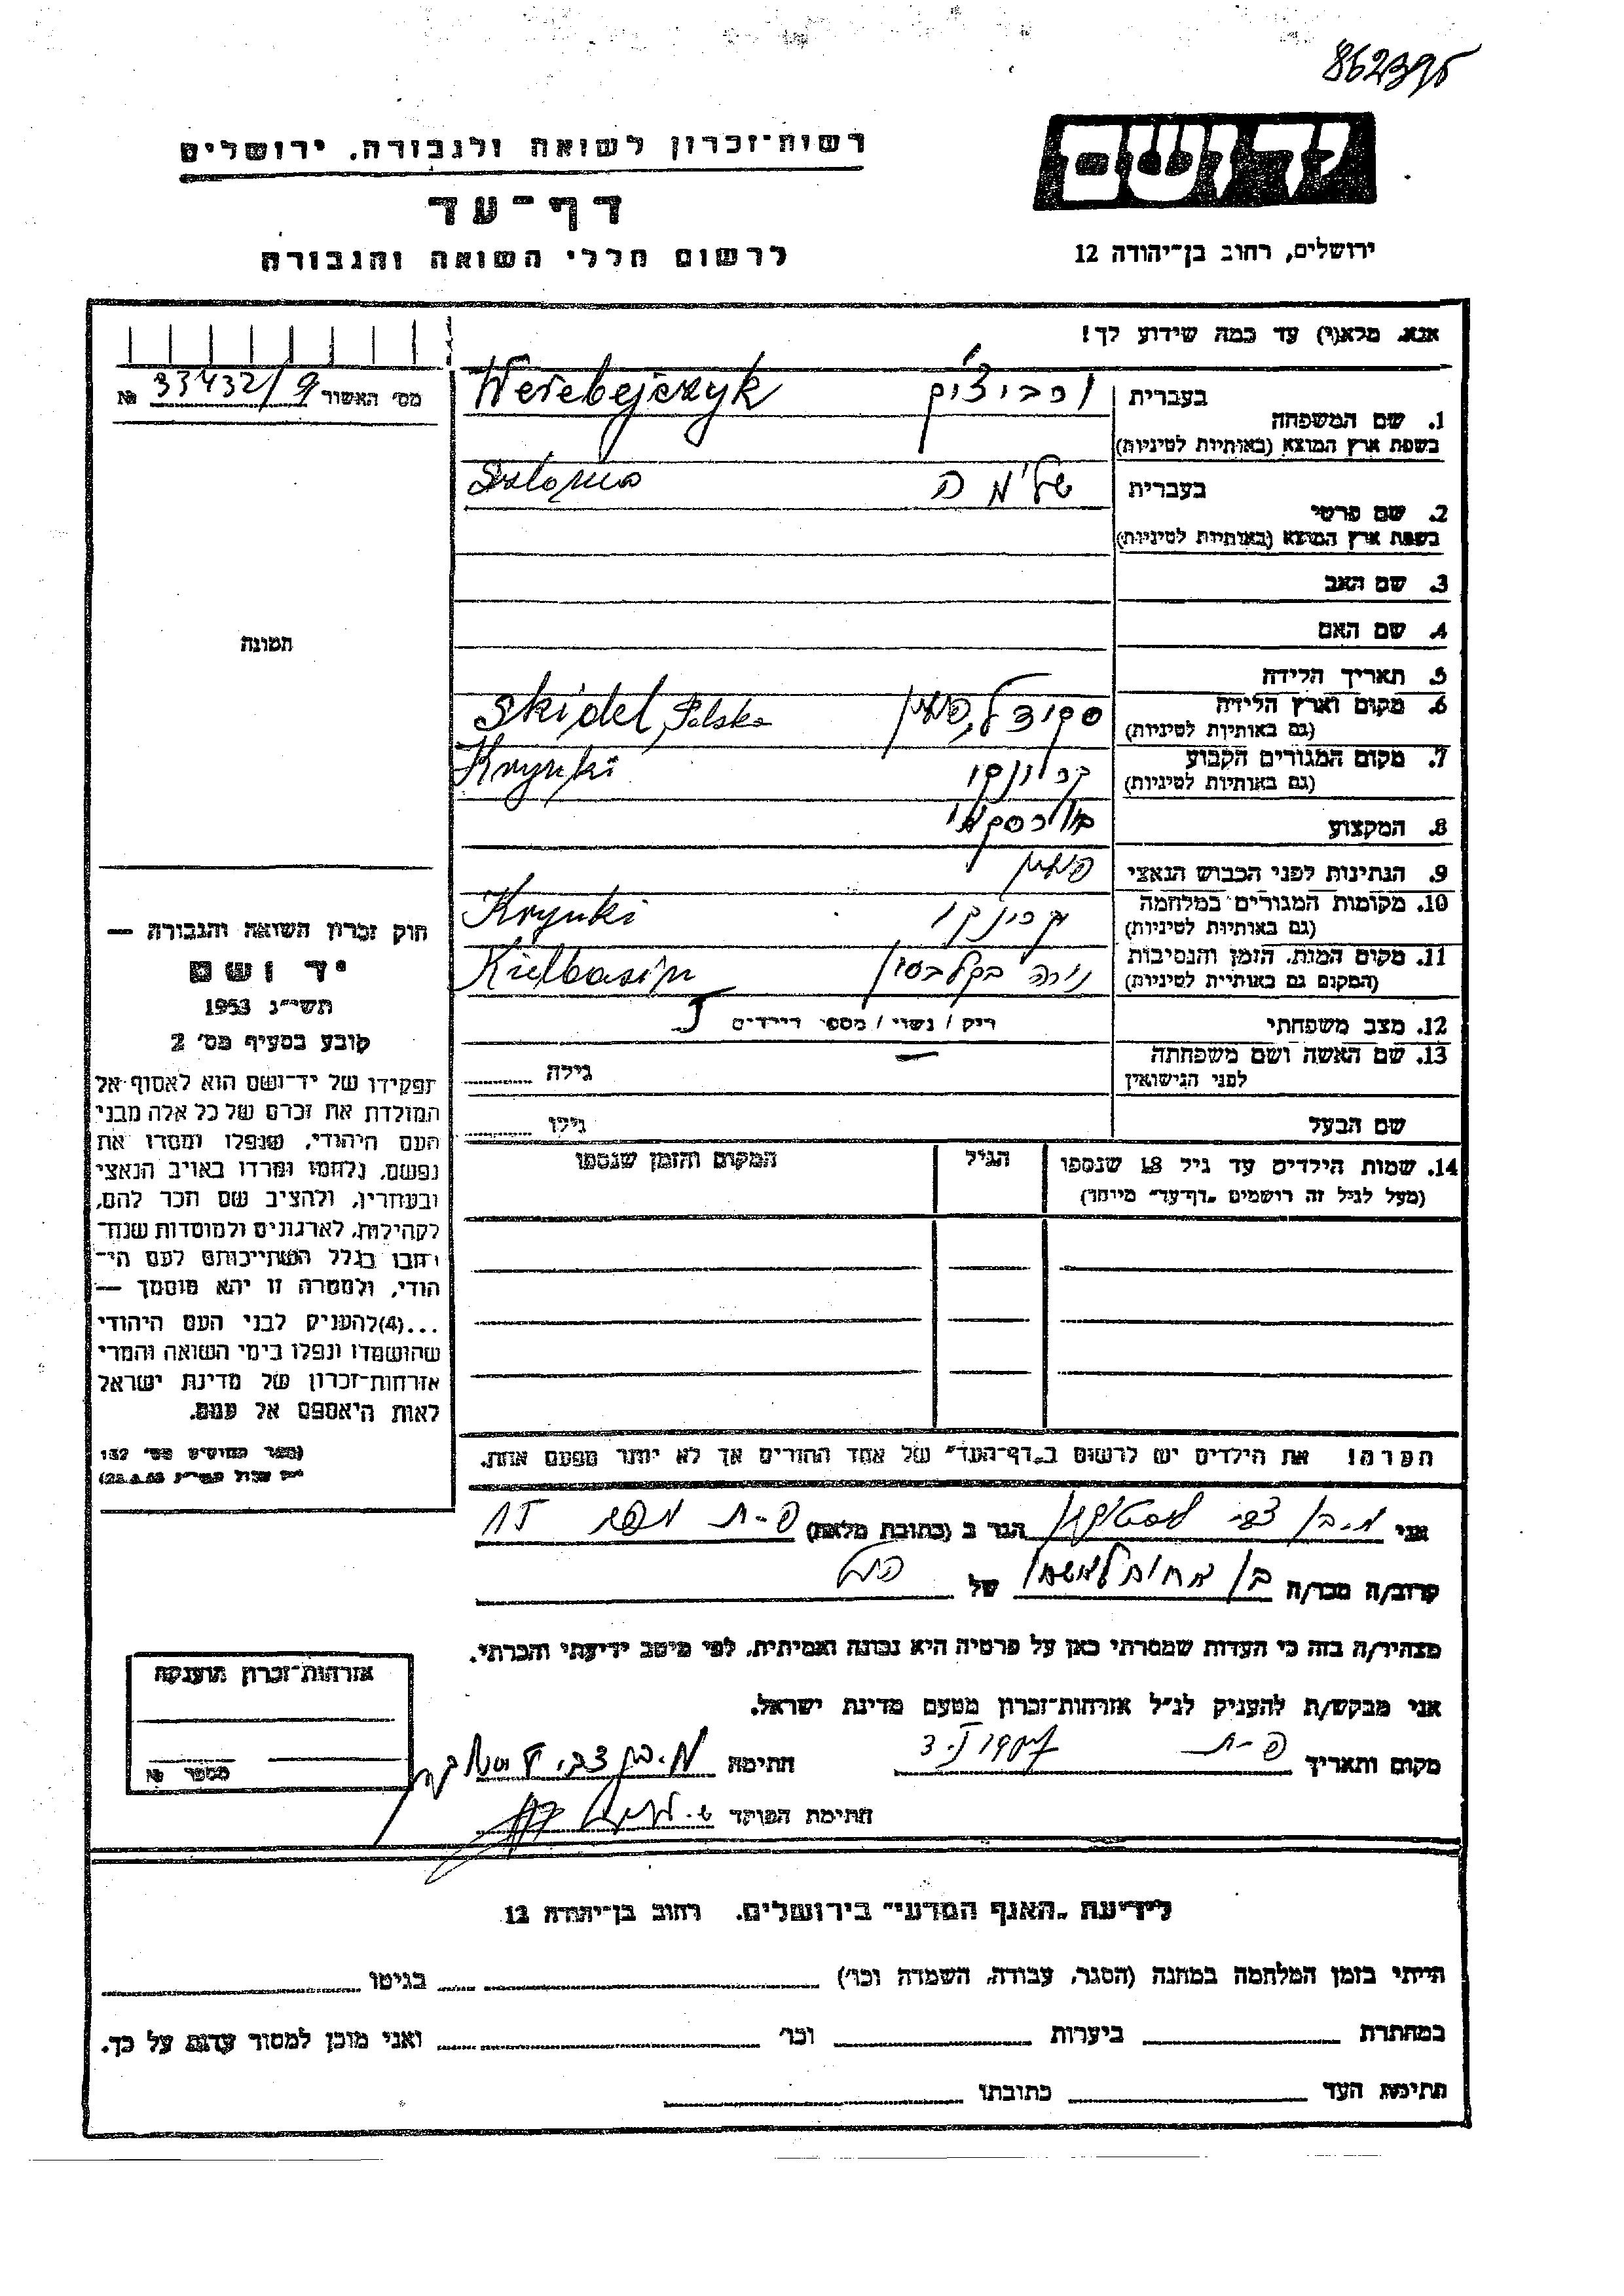 862395
רשות־זכרון לשואה ולגבורה, ירושלים
דף־עד
לרשום חללי השואה והגבורה
יד ושם
ירושלים, רחוב בן־יהודה 12
אנא, מלא(י) עד כמה שידוע לך!
מס׳ האשור 33432/9 №
1. שם המשפחה
בעברית
Werebejczyk
בשפת ארץ המוצא (באותיות לטיניות)
2. שם פרטי
בעברית שלימה
בשפת ארץ המוצא (באותיות לטיניות)
3. שם האב
4. שם האם
תמונה
5. תאריך הלידה
6. מקום וארץ הלידה
(גם באותיות לטיניות)
סקידל, פולין Skidel, Polska
7. מקום המגורים הקבוע
(גם באותיות לטיניות)
קרינקי Krynki
8. המקצוע
9. הנתינות לפני הכבוש הנאצי פולין
10. מקומות המגורים במלחמה
(גם באותיות לטיניות)
קרינקי Krynki
11. מקום המות, הזמן והנסיבות
(המקום גם באותיות לטיניות)
Kielbasin
12. מצב משפחתי רוק / נשוי / מספר הילדים
13. שם האשה ושם משפחתה
לפני הנישואין
גילה
שם הבעל גילו
14. שמות הילדים עד גיל 18 שנספו הגיל המקום והזמן שנספו
(מעל לגיל זה רושמים „דף־עד״ מיוחד)
חוק זכרון השואה והגבורה —
יד ושם
תשי״ג 1953
קובע בסעיף מס׳ 2
תפקידו של יד־ושם הוא לאסוף אל
המולדת את זכרם של כל אלה מבני
העם היהודי, שנפלו ומסרו את
נפשם, נלחמו ומרדו באויב הנאצי
ובעוזריו, ולהציב שם וזכר להם,
לקהילות, לארגונים ולמוסדות שנח־
רבו בגלל השתייכותם לעם הי־
הודי, ולמטרה זו יהא מוסמך —
...(4)להעניק לבני העם היהודי
שהושמדו ונפלו בימי השואה והמרי
אזרחות־זכרון של מדינת ישראל
לאות היאספם אל עמם.
(ספר החוקים מס׳ 132
הערה! את הילדים יש לרשום ב„דף־העד״ של אחד ההורים אך לא יותר מפעם אחת.
אני הגר ב (כתובת מלאה) פ-ת
קרוב/ה מכר/ה של
מצהיר/ה בזה כי העדות שמסרתי כאן על פרטיה היא נכונה ואמיתית, לפי מיטב ידיעתי והכרתי.
אני מבקש/ת להעניק לנ״ל אזרחות־זכרון מטעם מדינת ישראל.
מקום ותאריך פ-ת חתימה
חתימת הפוקד
אזרחות־זכרון הוענקה
מספר №
לידיעת „האגף המדעי״ בירושלים, רחוב בן־יהודה 12
הייתי בזמן המלחמה במחנה (הסגר, עבודה, השמדה וכו׳) בגיטו
במחתרת ביערות וכו׳ ואני מוכן למסור עדות על כך.
חתימת העד כתובתו